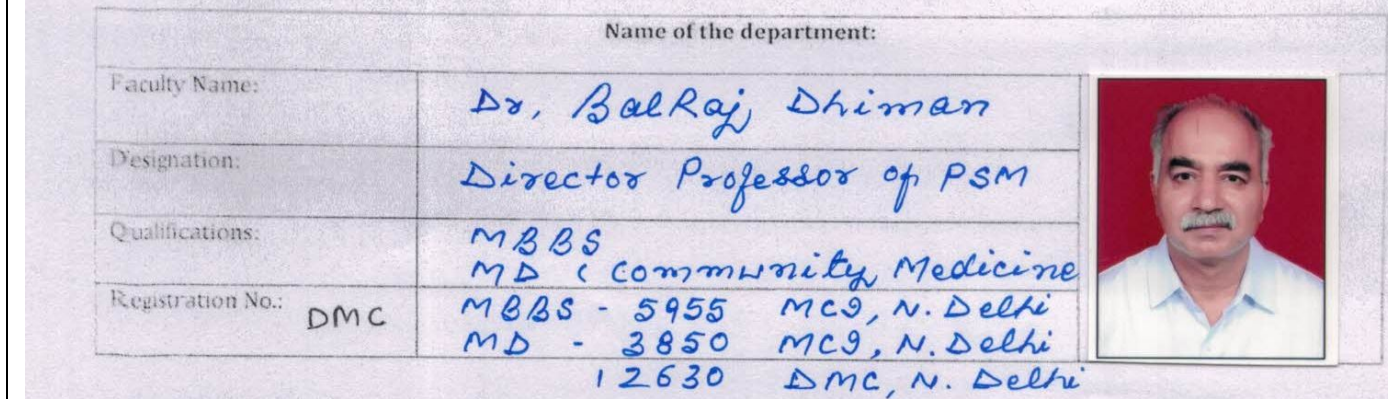 Name of the department:
Faculty Name: Dr. BalRaj Dhiman
Designation: Director Professor of PSM
Qualifications: MBBS
MD ( Community Medicine
Registration No.: DMC MBBS - 5955 MCI, N. Delhi
MD - 3850 MCI, N. Delhi
12630 DMC, N. Delhi